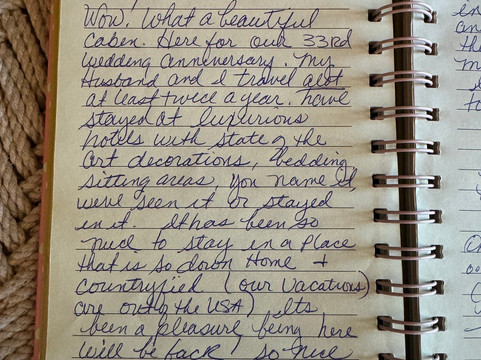 Wow! What a beautiful
Caben. Here for our 33rd
wedding anniversary. My
Husband and I travel alot
at least twice a year. have
stayed at luxurious
hotels with state of the
art decorations, bedding,
sitting areas, you name it,
we've seen it or stayed
in it. It has been so
nice to stay in a place
that is so down Home +
countryfied (our vacations)
are out of the USA) Its
been a pleasure being here
will be back! so nice